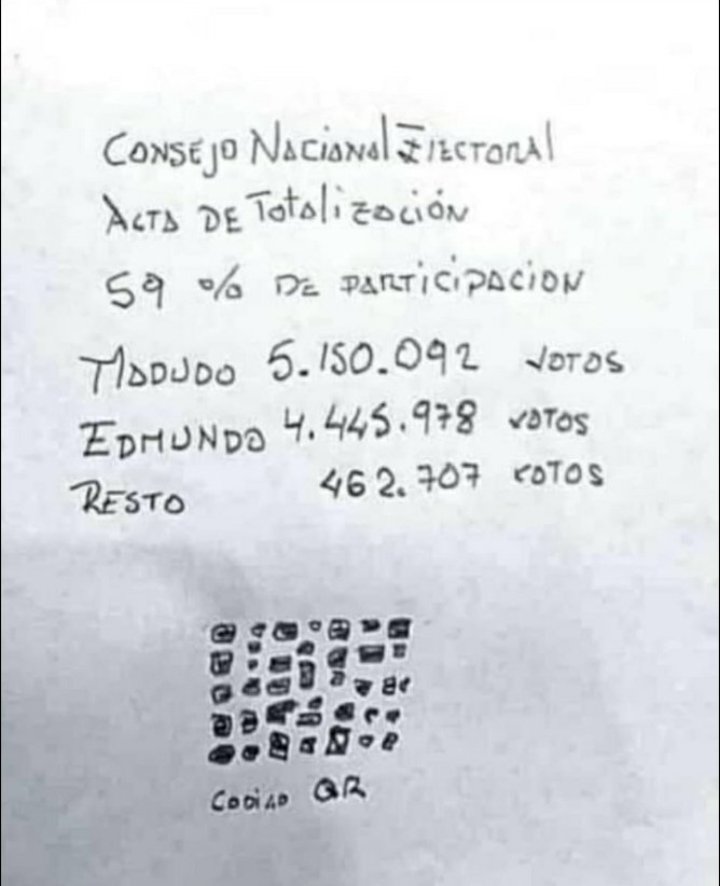 CONSEJO NACIONAL ELECTORAL
ACTA DE TOTALIZACIÓN
59 % DE PARTICIPACION
MADUDO 5.150.092 VOTOS
EDMUNDO 4.445.978 VOTOS
RESTO 462.707 VOTOS
CODIGO QR